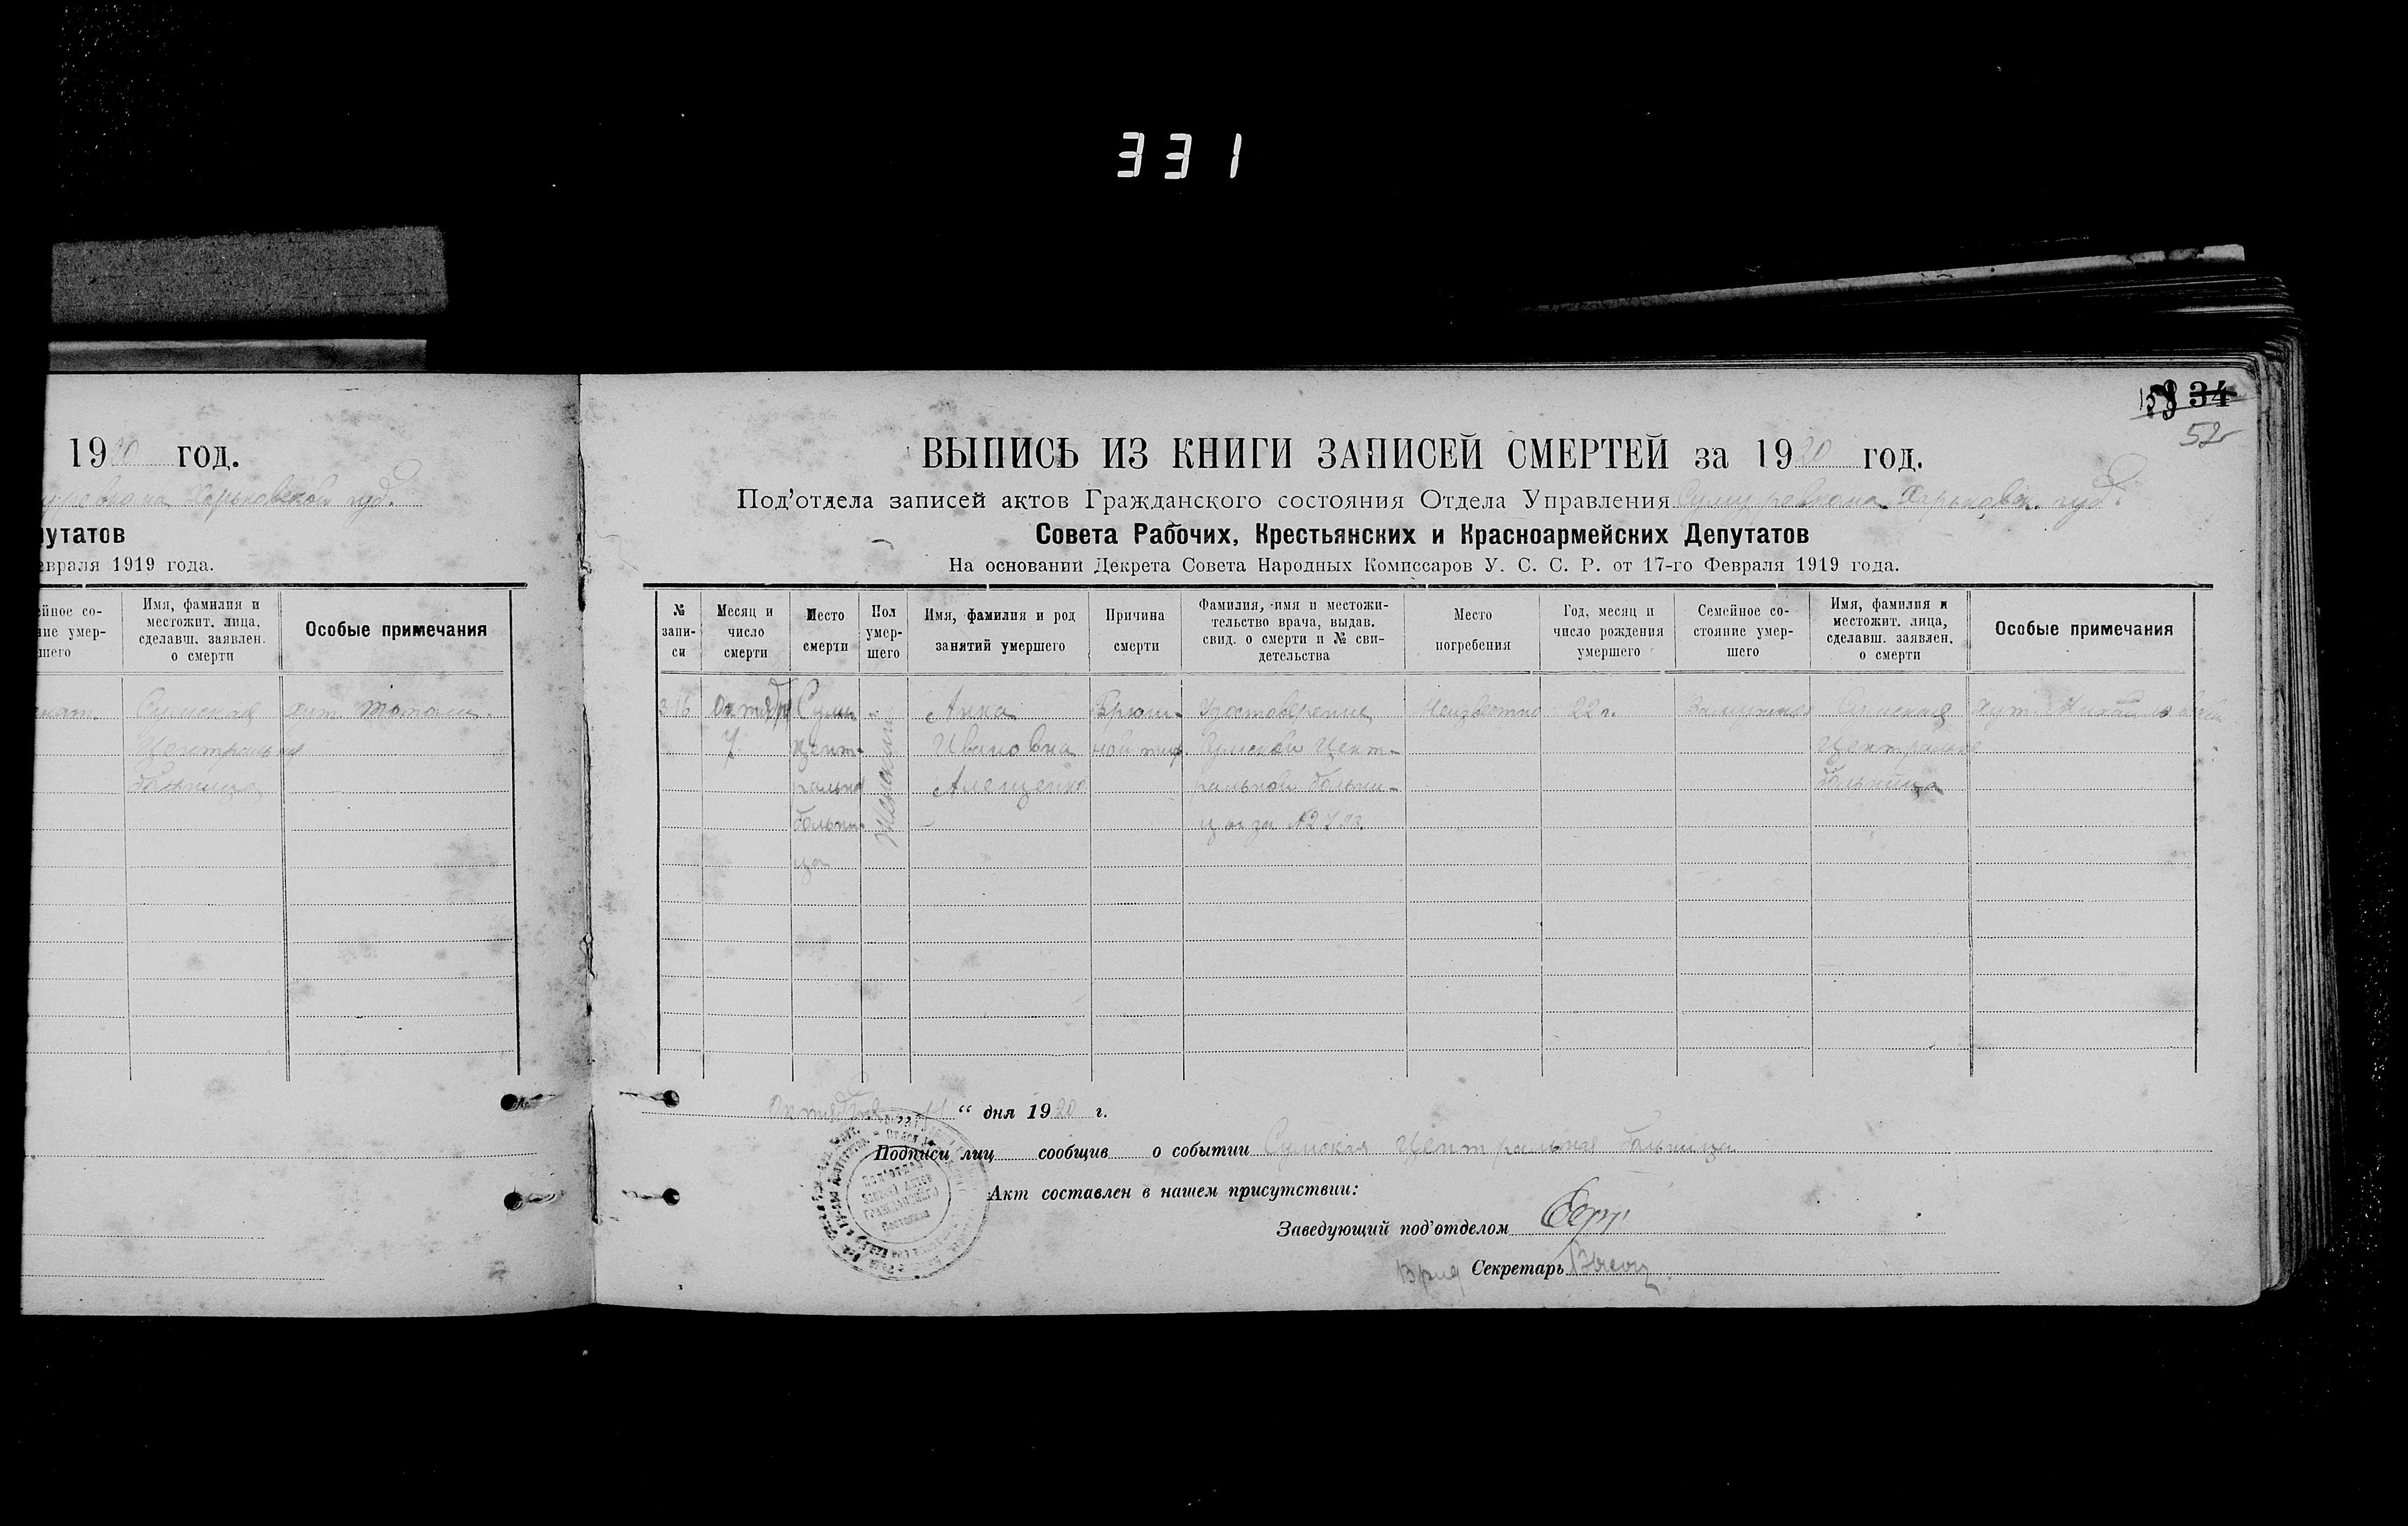 331
1920 год.
Харьковской губ.
путатов
евраля 1919 года.
ейное со-
ние умер-
шего
Имя, фамилия и
местожит. лица,
сделавш. заявлен.
о смерти
Особые примечания
Сумская
хут.
Центральная
больница
34
52
ВЫПИСЬ ИЗ КНИГИ ЗАПИСЕЙ СМЕРТЕЙ за 1920 год.
Под'отдела записей актов Гражданского состояния Отдела Управления Сумуревкома Харьковск. губ.
Совета Рабочих, Крестьянских и Красноармейских Депутатов
На основании Декрета Совета Народных Комиссаров У. С. С. Р. от 17-го Февраля 1919 года.
№
запи-
си
Месяц и
число
смерти
Место
смерти
Пол
умер-
шего
Имя, фамилия и род
занятий умершего
Причина
смерти
Фамилия, имя и местожи-
тельство врача, выдав.
свид. о смерти и № сви-
детельства
Место
погребения
Год, месяц и
число рождения
умершего
Семейное со-
стояние умер-
шего
Имя, фамилия и
местожит. лица,
сделавш. заявлен.
о смерти
Особые примечания
316
Октября
7
Сумы
цент-
ральна
больни-
ца
Женский
Анна
Ивановна
Алещенко
Брюш-
ной тиф
Удостоверение
Сумской Цент-
ральной больни-
цы за №
Неизвестно
22 г.
Замужняя
Сумская
Центральная
больница
хут.
Октября „11“ дня 1920 г.
Подписи лиц сообщив о событии Сумская Центральная больница
Акт составлен в нашем присутствии:
Заведующий под'отделом
Врид Секретарь
Под'отдел
Записи Актов
Гражданского
Состояния